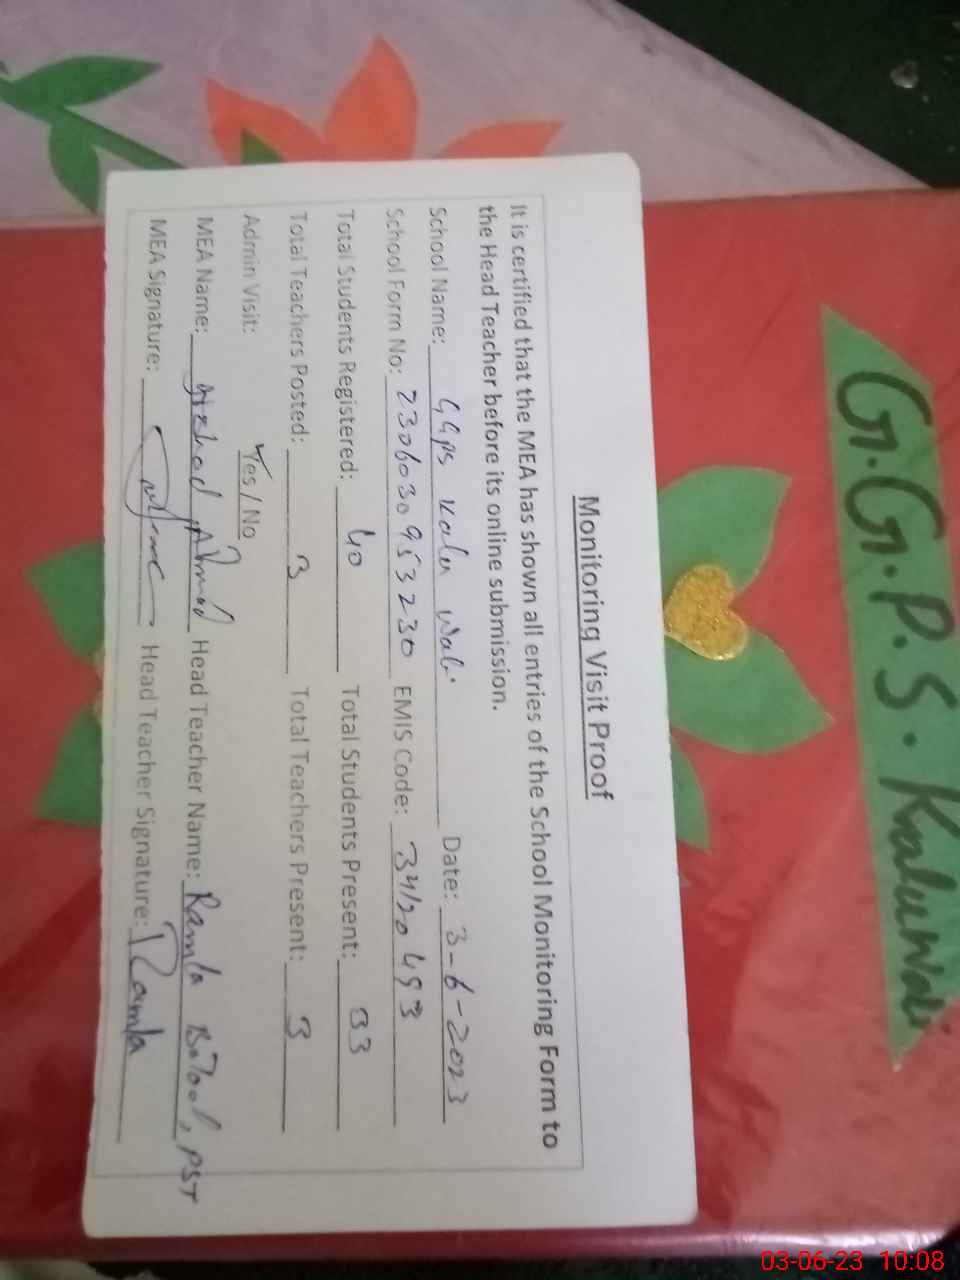 G.G.P.S. Kaluwali
Monitoring Visit Proof
It is certified that the MEA has shown all entries of the School Monitoring Form to
the Head Teacher before its online submission.
School Name: GGPS Kalu Wali Date: 3-6-2023
School Form No: 2306030953230 EMIS Code: 34120493
Total Students Registered: 40 Total Students Present: 33
Total Teachers Posted: 3 Total Teachers Present: 3
Admin Visit: Yes / No
MEA Name: Ahmad Head Teacher Name: Ramla Batool, PST
MEA Signature: Head Teacher Signature: Ramla
03-06-23 10:08